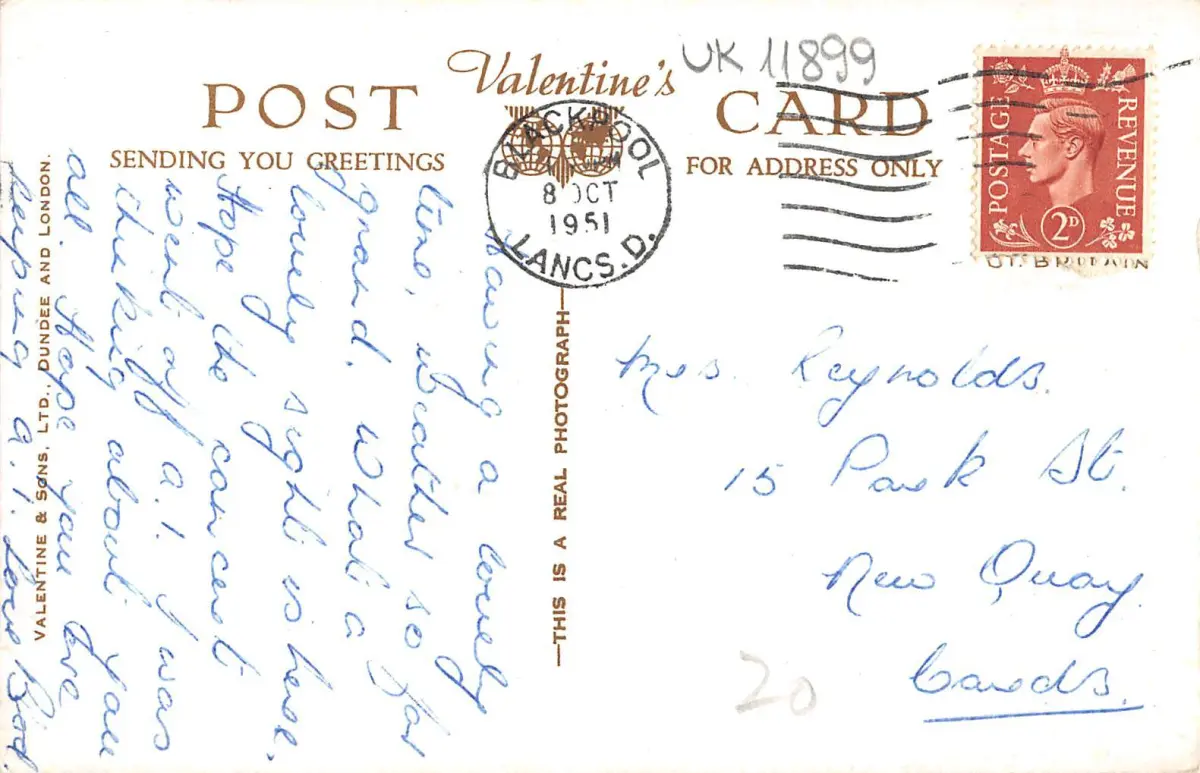 UK 11899
Valentine's
POST CARD
SENDING YOU GREETINGS
FOR ADDRESS ONLY
BLACKPOOL
8 OCT
1951
LANCS.D.
POSTAGE
REVENUE
2D
GT. BRITAIN
Having a lovely
time, weather so far
grand. What a
lovely sight is here.
Hope the concert
went off a.1. I was
thinking about you
all. Hope you are
keeping a.1. Love
THIS IS A REAL PHOTOGRAPH
VALENTINE & SONS, LTD., DUNDEE AND LONDON.
Mrs. Reynolds.
15 Park St.
New Quay.
Cards.
20